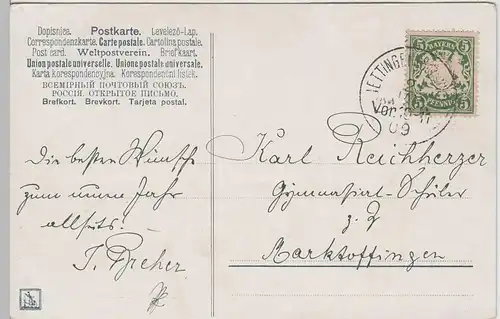 Dopisnica. Postkarte. Levelező-Lap.
Correspondenzkarte. Carte postale. Cartolina postale.
Post card. Weltpostverein. Briefkaart.
Union postale universelle. Unione postale universale.
Karta korespondencyjna. Korespondenční lístek.
ВСЕМІРНЫЙ ПОЧТОВЫЙ СОЮЗЪ.
РОССІЯ. ОТКРЫТОЕ ПИСЬМО.
Brefkort. Brevkort. Tarjeta postal.
5 BAYERN 5
5 PFENNIG 5
OETTINGEN
Vor. 10-11
09
Die besten Wünsche
zum neuen Jahr
allseits.
Karl Reichherzer
Gymnasiast-Schüler
z. Z
Marktoffingen